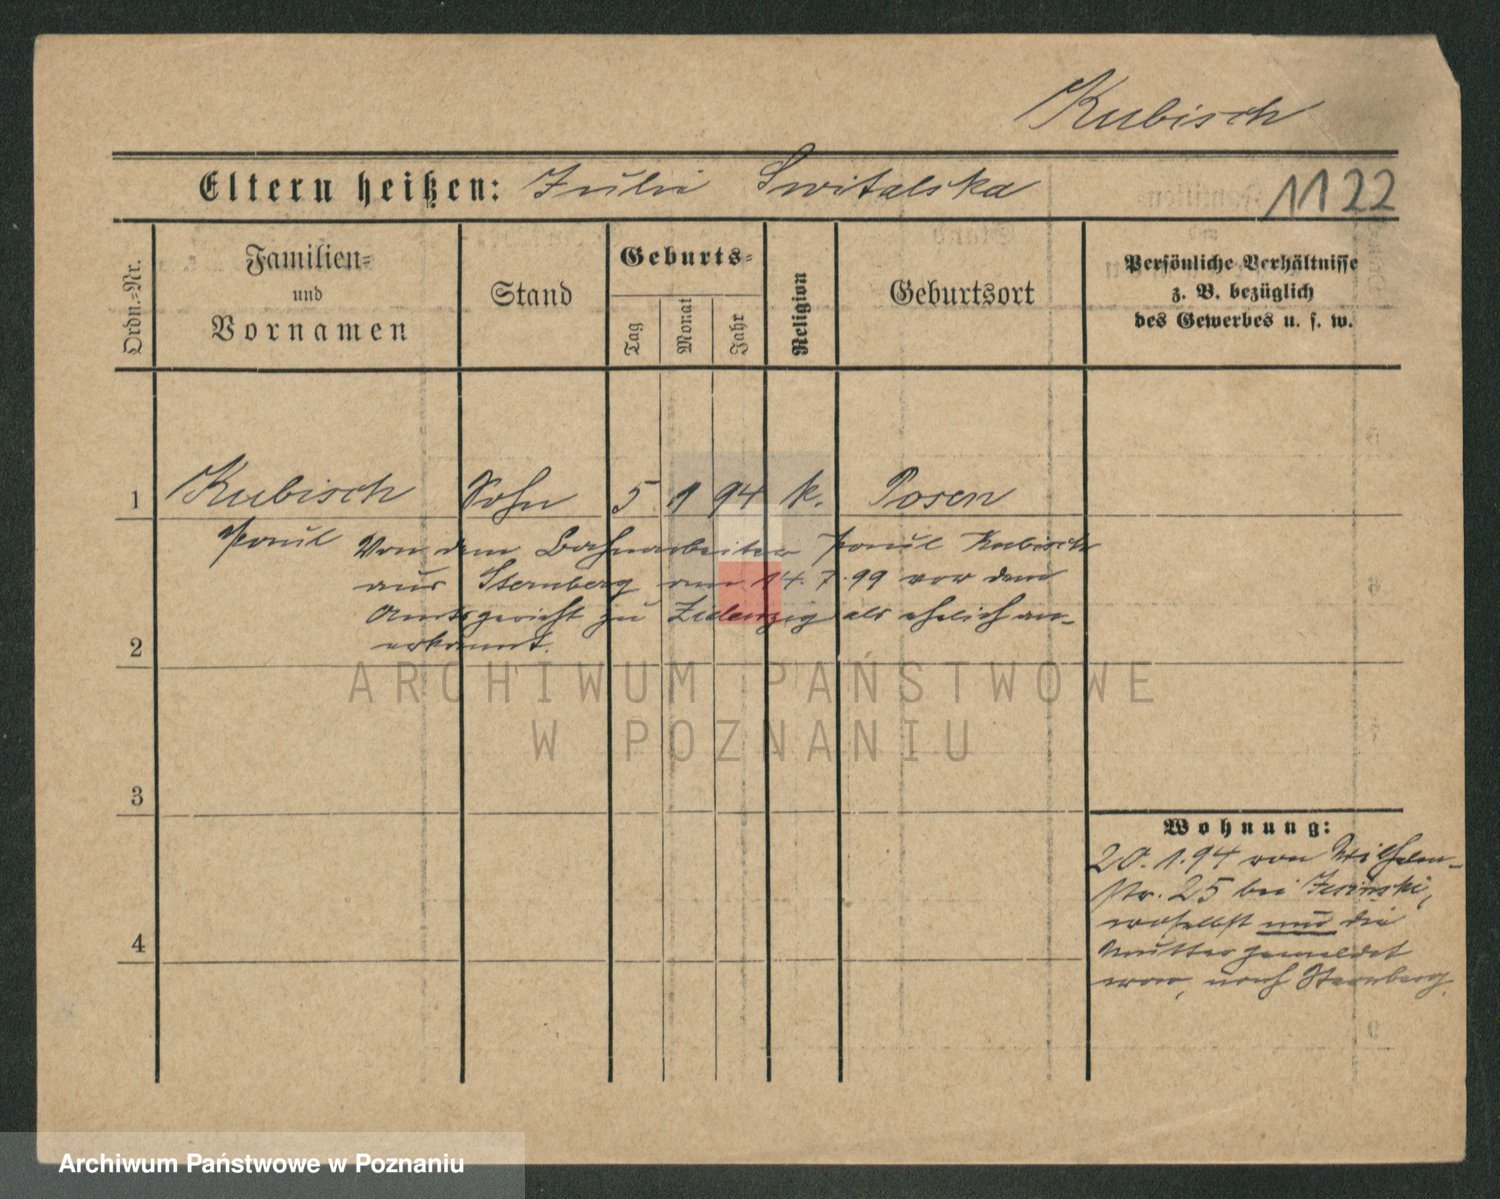 Kubisch
Eltern heißen: Julie Switalska
1122
Ordn.=Nr.
Familien=
und
Vornamen
Stand
Geburts=
Tag
Monat
Jahr
Religion
Geburtsort
Persönliche Verhältnisse
z. B. bezüglich
des Gewerbes u. s. w.
1 Kubisch Sohn 5 1 94 k. Posen
Paul
Von dem Bahnarbeiter Paul Kubisch
aus Sternberg am 14.7.99 vor dem
Amtsgericht zu Zielenzig als ehelich an-
erkannt.
2
3
4
Wohnung:
20.1.94 von Wilhelm-
str. 25 bei
woselbst nur die
Mutter gemeldet
war, nach Sternberg.
ARCHIWUM PAŃSTWOWE
W POZNANIU
Archiwum Państwowe w Poznaniu